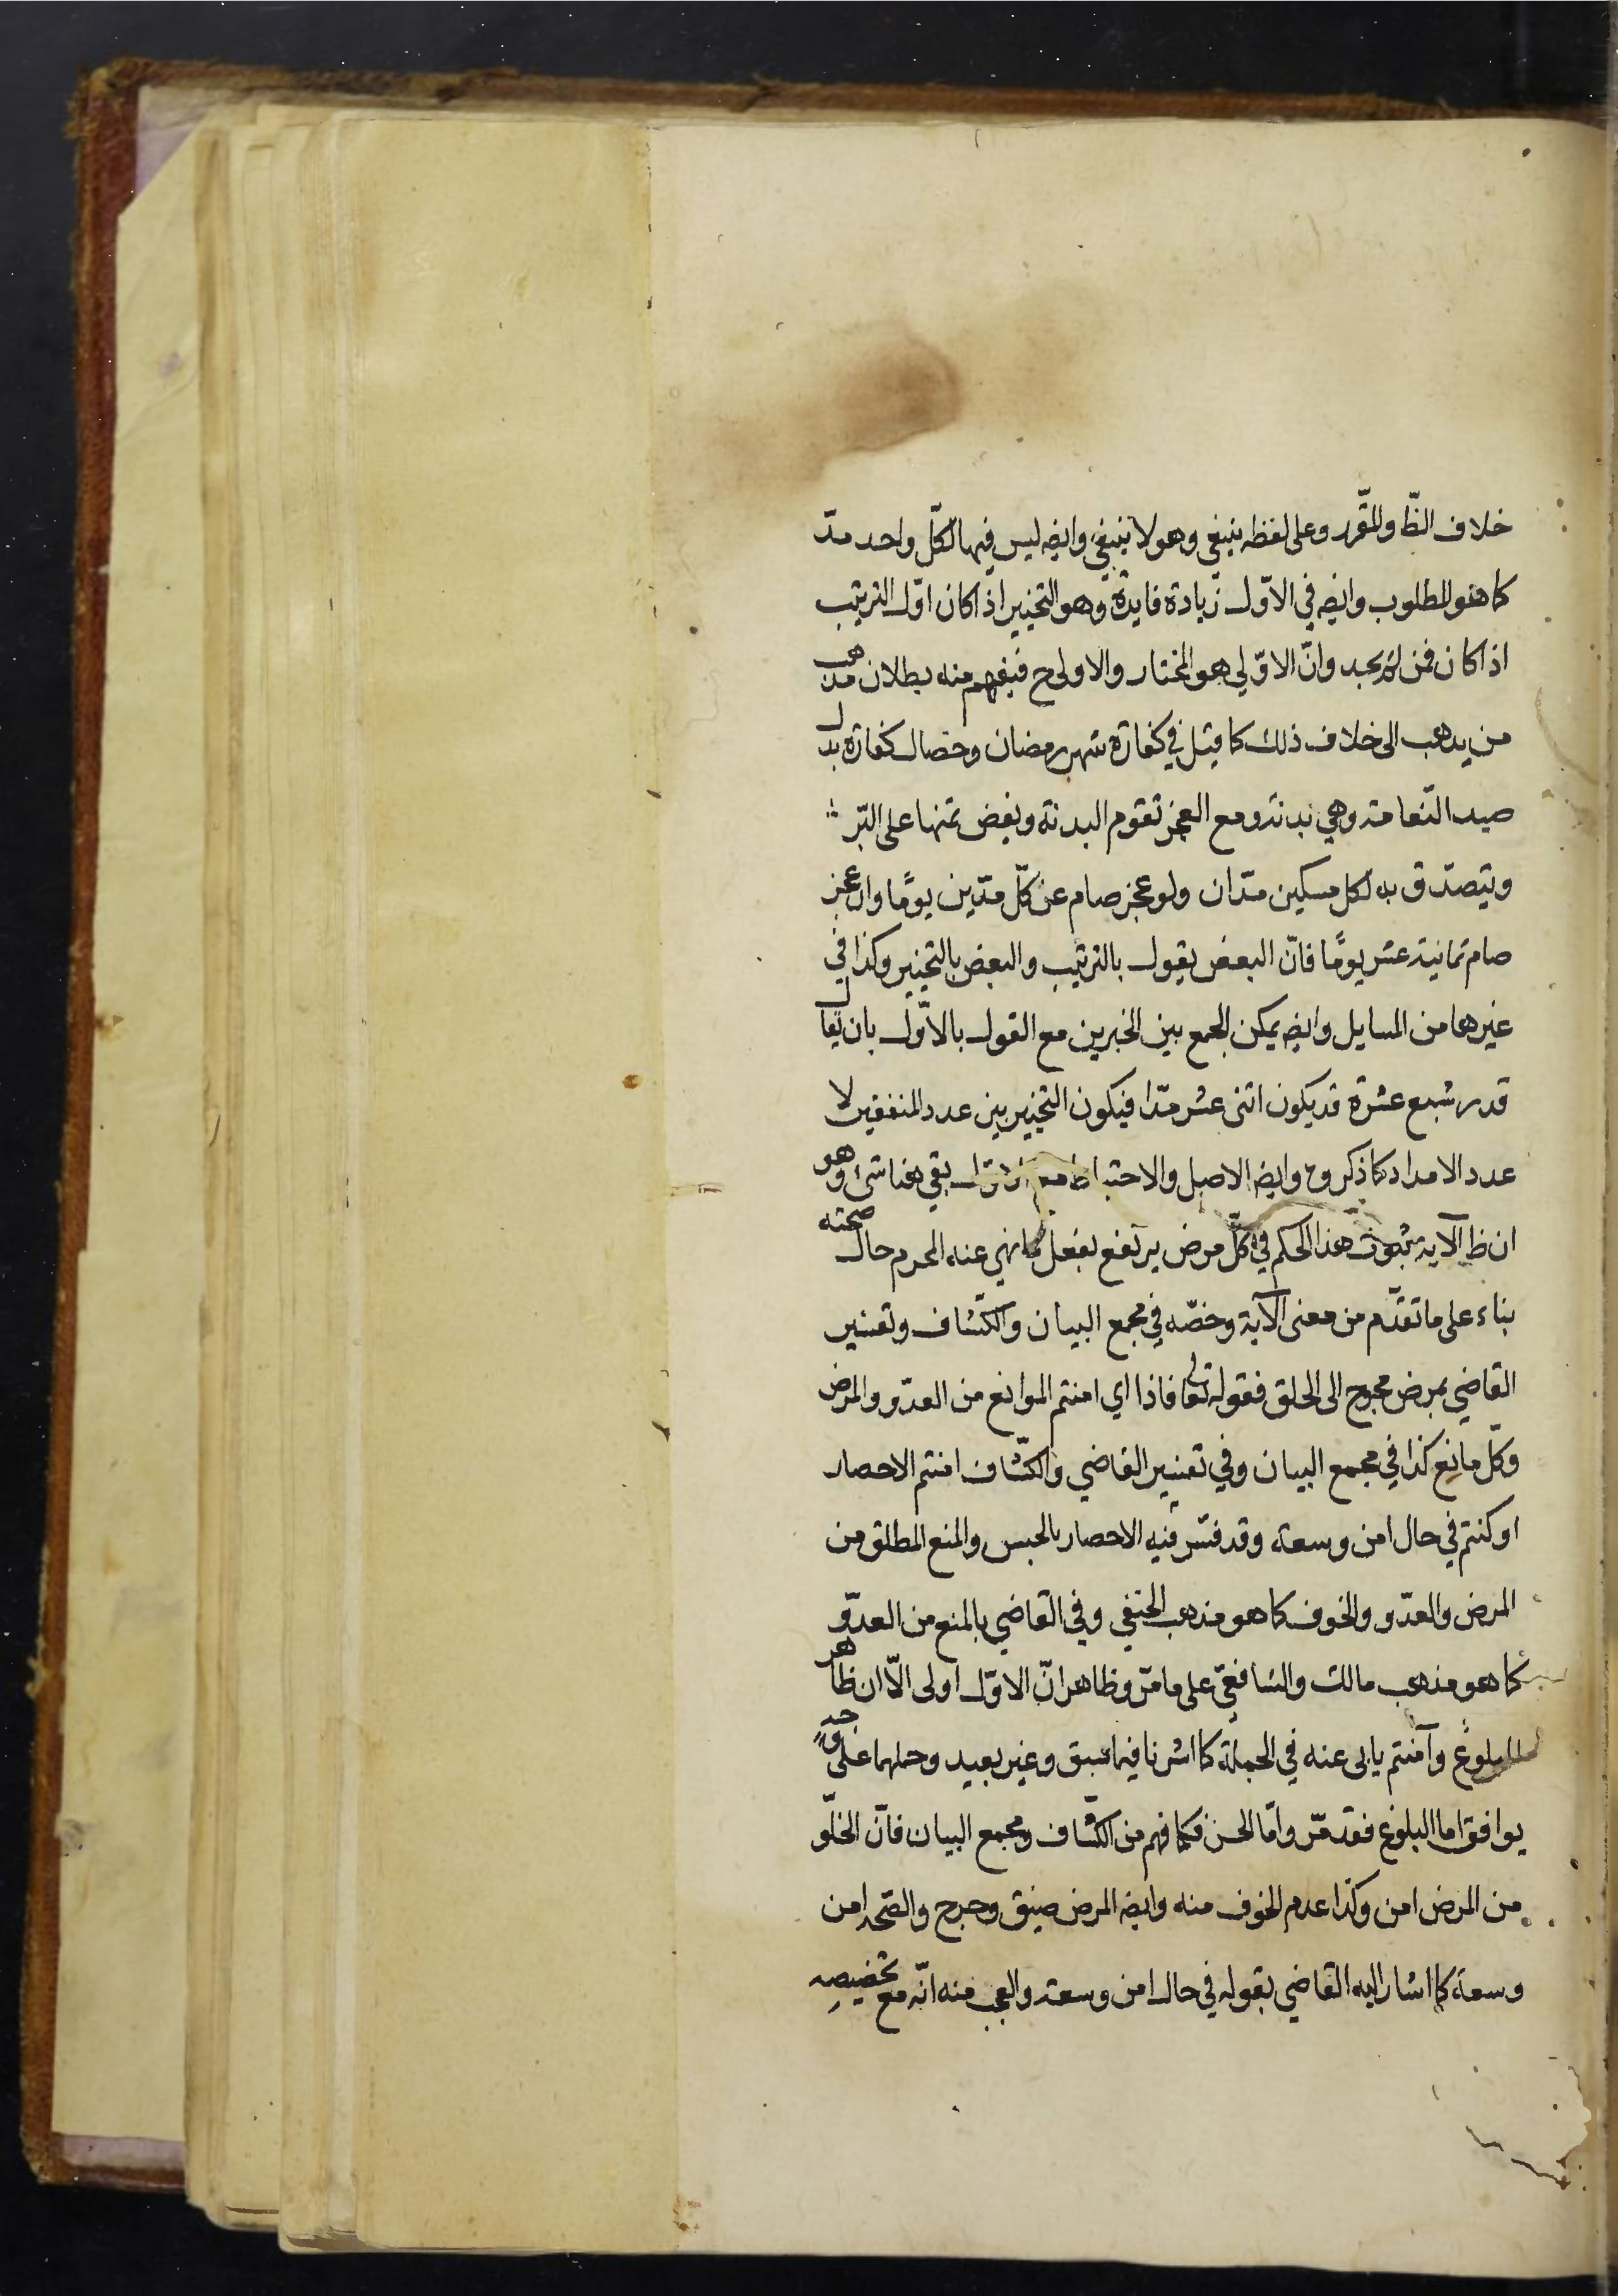 خلاف الظ والمقرر وعلى لفظه ينبغي وهو لا ينبغي وايضه ليس فيها لكل واحد مدّ
كما هو المطلوب وايضه في الاوّل زيادة فايدة وهو التخيير اذا كان اوّل الترتيب
اذا كان فمن لم يجد وانّ الاوّلي هو المختار والاولى ح فيفهم منه بطلان مذهب
من يذهب الى خلاف ذلك كما قيل في كفارة شهر رمضان وخصال كفارة بدل
صيد النّعامة وهي بدنة ومع العجز تقوم البدنة ويفض ثمنها على البّر
ويتصدّق به لكل مسكين مدّان ولو عجز صام عن كلّ مدّين يومًا وان عجز
صام ثمانية عشر يومًا فانّ البعض يقول بالترتيب والبعض بالتخيير وكذا في
غيرها من المسايل وايضه يمكن الجمع بين الخبرين مع القول بالاوّل بان يقال
قدر شبع عشرة قد يكون اثنى عشر مدّا فيكون التخيير بين عدد المنفقين لا
عدد الامداد كما ذكروح وايضه الاصل والاحتياط مع الاول بقي هنا شئ وهو
ان ظ الآية ثبوت هذا الحكم في كلّ مرض يرتفع بفعل ما نهي عنه المحرم حال صحته
بناء على ما تقدّم من معنى الآية وخصّه في مجمع البيان والكشّاف وتفسير
القاضي بمرض محوج الى الحلق فقوله تعالى فاذا اي امنتم الموانع من العدّو والمرض
وكلّ مانع كذا في مجمع البيان وفي تفسير القاضي والكشّاف امنتم الاحصار
او كنتم في حال امن وسعة وقد فسّر فيه الاحصار بالحبس والمنع المطلق من
المرض والعدّو والخوف كما هو مذهب الحنفي وفي القاضي بالمنع من العدّو
كما هو مذهب مالك والشافعيّ على ما مرّ وظاهر انّ الاوّل اولى الّا ان ظاهر
البلوغ وآمنتم يابى عنه في الجملة كما اشرنا فيما سبق وغير بعيد وحملهما على وجه
يوافق اما البلوغ فقد مرّ وامّا الحسن فكما فهم من الكشّاف ومجمع البيان فانّ الخلّو
من المرض امن وكذا عدم الخوف منه وايضه المرض ضيق وحرج والصّحة امن
وسعة كما اشار اليه القاضي بقوله في حال امن وسعة والعجب منه انّه مع تخصيصه